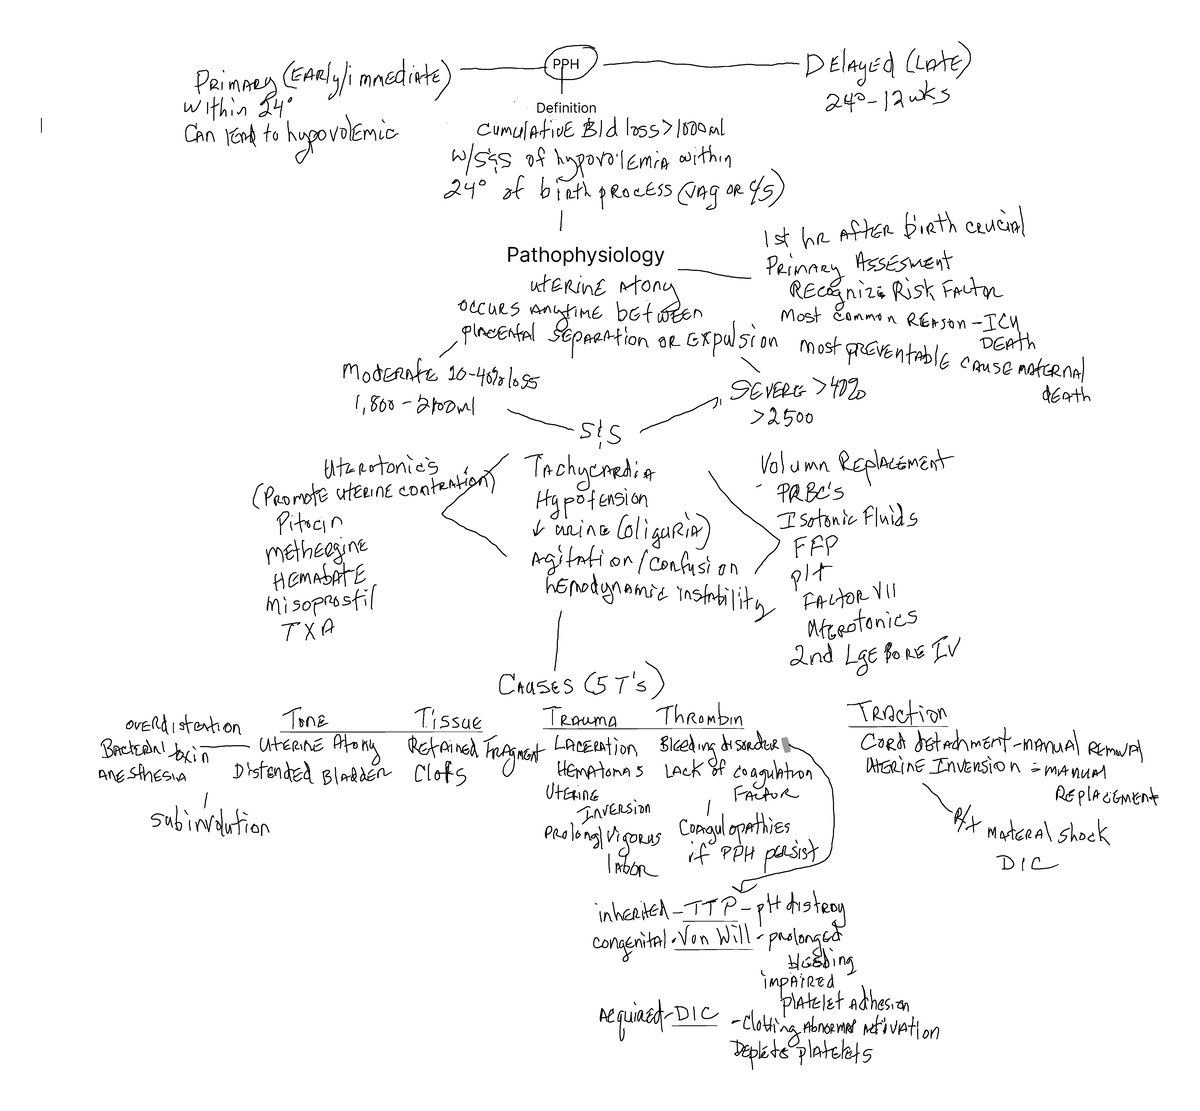 PPH
Primary (Early/immediate)
within 24°
Can lead to hypovolemic
Delayed (Late)
24° - 12 wks
Definition
Cumulative Bld loss > 1000ml
w/S&S of hypovolemia within
24° of birth process (vag or c/s)
Pathophysiology
uterine Atony
occurs anytime between
placental separation or expulsion
1st hr after birth crucial
Primary Assesment
Recognize Risk Factor
most common reason - ICU
Death
most preventable cause maternal
death
Moderate 20-40% loss
1,800 - 2100ml
Severe > 40%
> 2500
S&S
Tachycardia
Hypotension
↓ urine (oliguria)
Agitation/confusion
hemodynamic instability
Uterotonics
(Promote uterine contration)
Pitocin
Methergine
Hemabate
Misoprostil
TXA
Volumn Replacement
PRBC's
Isotonic Fluids
FFP
plt
Factor VII
uterotonics
2nd Lge Bore IV
Causes (5 T's)
Tone
uterine Atony
Distended Bladder
overdistention
Bacterial toxin
anesthesia
subinvolution
Tissue
Retained Fragment
Clots
Trauma
Laceration
Hematomas
Uterine
Inversion
Prolong/vigorus
labor
Thrombin
Bleeding disorder
Lack of coagulation
Factor
Coagulopathies
if PPH persist
Traction
Cord detachment - manual removal
uterine Inversion = manual
Replacement
R/t materal shock
DIC
inherited - TTP - plt distroy
congenital - Von Will - prolonged
bleeding
impaired
platelet adhesion
Acquired - DIC
- Clotting Abnormal activation
Deplete platelets